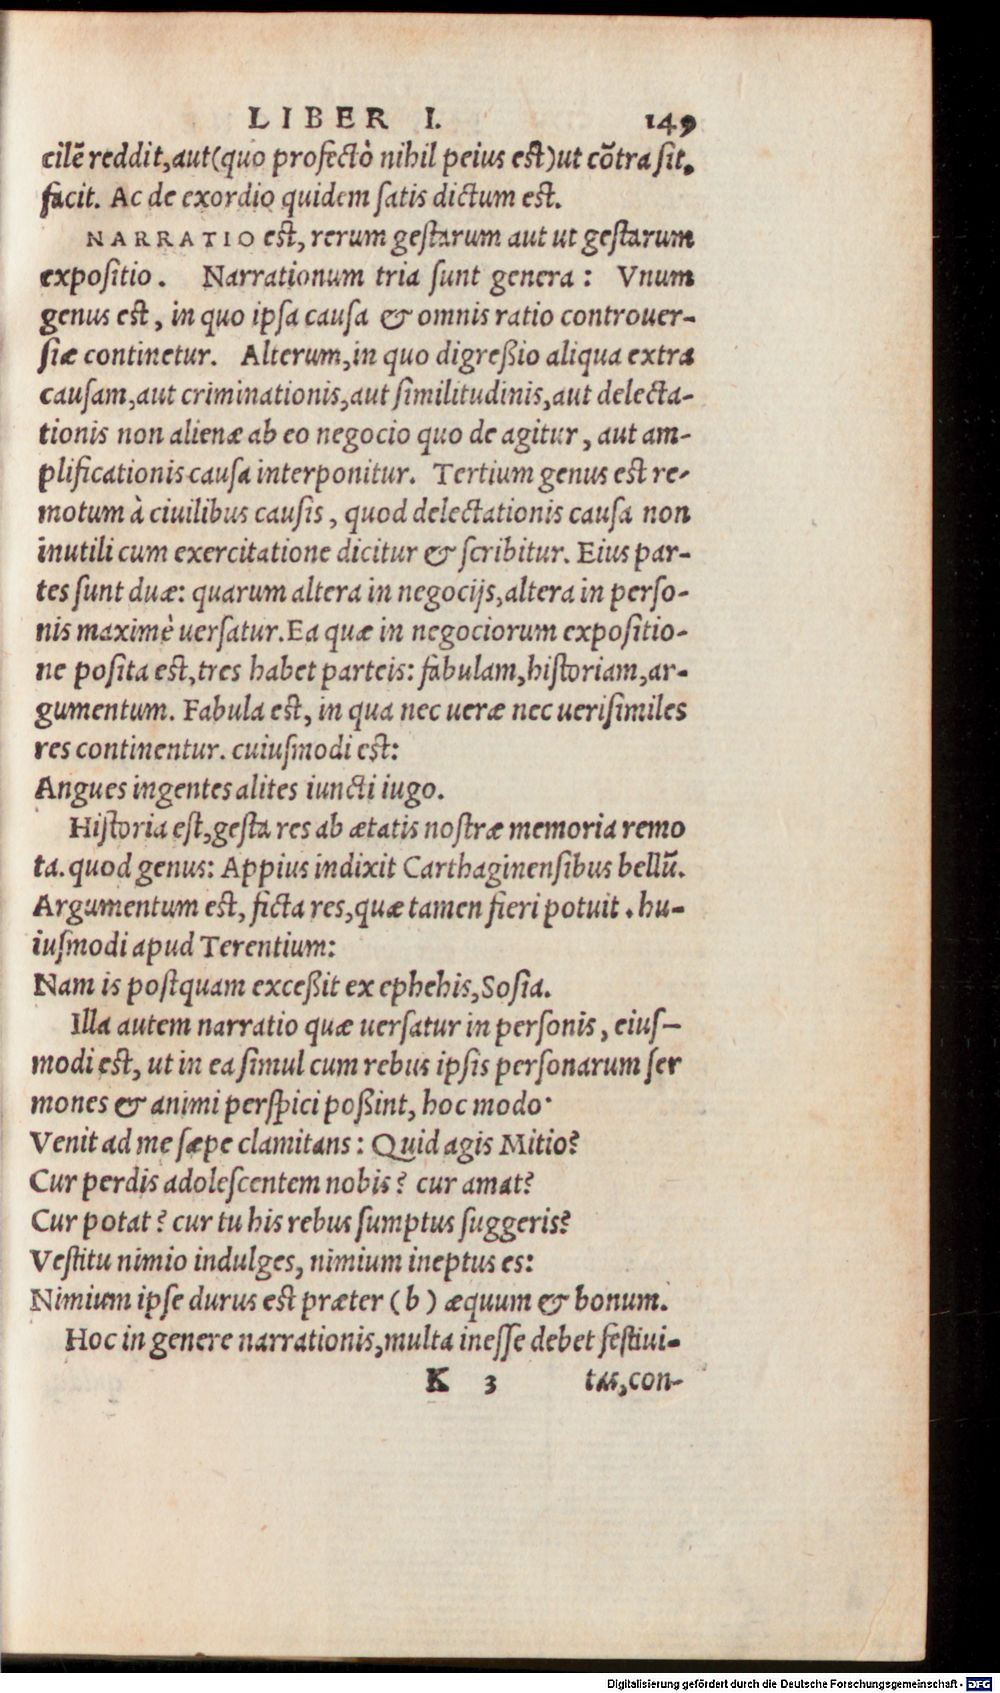 LIBER I. 149
cilē reddit,aut(quo profectò nihil peius est)ut cōtra sit,
facit. Ac de exordio quidem satis dictum est.
NARRATIO est, rerum gestarum aut ut gestarum
expositio. Narrationum tria sunt genera: Vnum
genus est, in quo ipsa causa & omnis ratio controuer-
siæ continetur. Alterum,in quo digreßio aliqua extra
causam,aut criminationis,aut similitudinis,aut delecta-
tionis non alienæ ab eo negocio quo de agitur, aut am-
plificationis causa interponitur. Tertium genus est re-
motum à ciuilibus causis, quod delectationis causa non
inutili cum exercitatione dicitur & scribitur. Eius par-
tes sunt duæ: quarum altera in negocijs,altera in perso-
nis maximè uersatur.Ea quæ in negociorum expositio-
ne posita est,tres habet parteis: fabulam,historiam,ar-
gumentum. Fabula est, in qua nec ueræ nec uerisimiles
res continentur. cuiusmodi est:
Angues ingentes alites iuncti iugo.
Historia est,gesta res ab ætatis nostræ memoria remo
ta. quod genus: Appius indixit Carthaginensibus bellū.
Argumentum est, ficta res,quæ tamen fieri potuit. hu-
iusmodi apud Terentium:
Nam is postquam exceßit ex ephebis,Sosia.
Illa autem narratio quæ uersatur in personis, eius-
modi est, ut in ea simul cum rebus ipsis personarum ser
mones & animi perspici poßint, hoc modo·
Venit ad me sæpe clamitans: Quid agis Mitio?
Cur perdis adolescentem nobis? cur amat?
Cur potat? cur tu his rebus sumptus suggeris?
Vestitu nimio indulges, nimium ineptus es:
Nimium ipse durus est præter (b) æquum & bonum.
Hoc in genere narrationis,multa inesse debet festiui-
K 3 tas,con-
Digitalisierung gefördert durch die Deutsche Forschungsgemeinschaft - DFG